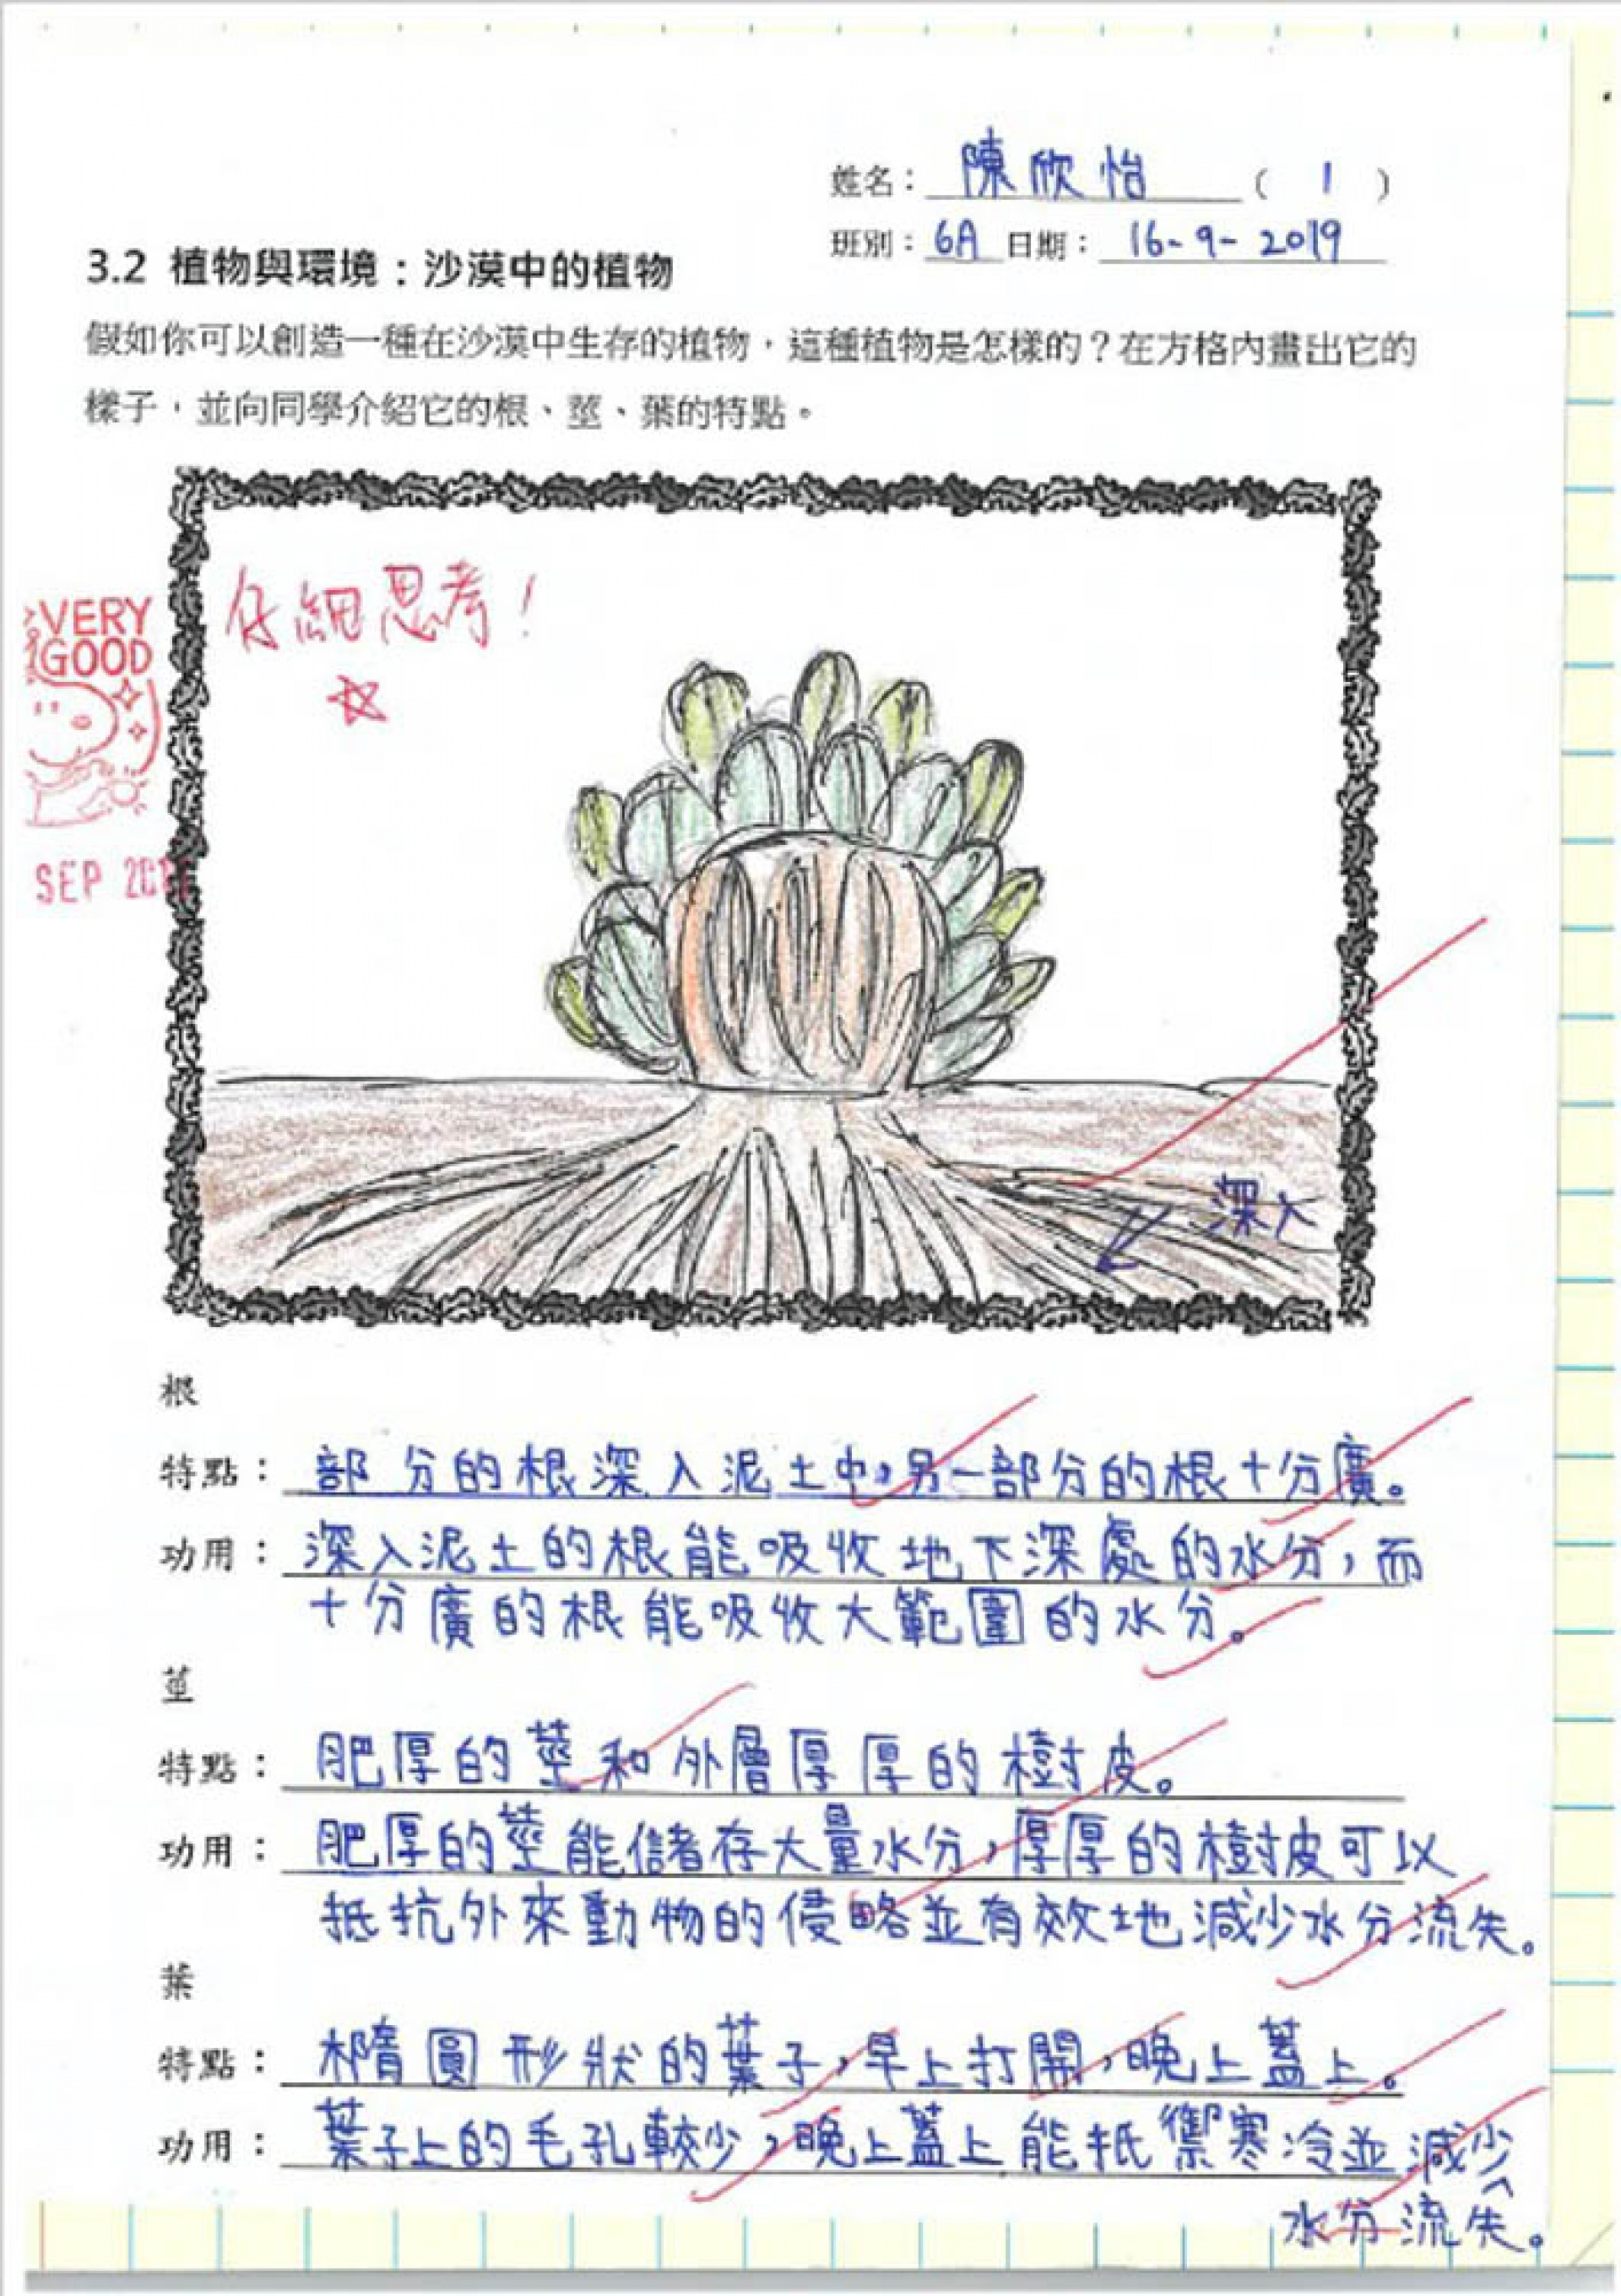 姓名：陳欣怡（1）
班別：6A 日期：16-9-2019
3.2 植物與環境：沙漠中的植物
假如你可以創造一種在沙漠中生存的植物，這種植物是怎樣的？在方格內畫出它的
樣子，並向同學介紹它的根、莖、葉的特點。
仔細思考！
VERY
GOOD
SEP 201
深入
根
特點：部分的根深入泥土中，另一部分的根十分廣。
功用：深入泥土的根能吸收地下深處的水分，而
十分廣的根能吸收大範圍的水分。
莖
特點：肥厚的莖和外層厚厚的樹皮。
功用：肥厚的莖能儲存大量水分，厚厚的樹皮可以
抵抗外來動物的侵略並有效地減少水分流失。
葉
特點：橢圓形狀的葉子，早上打開，晚上蓋上。
功用：葉子上的毛孔較少，晚上蓋上能抵禦寒冷並減少
水分流失。